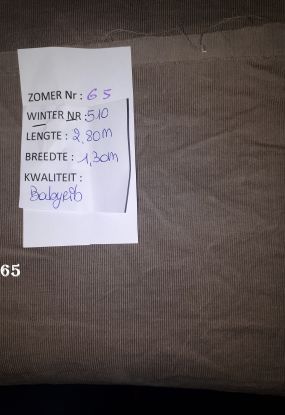 ZOMER Nr : 65
WINTER NR :510
LENGTE : 2,80m
BREEDTE : 1,30m
KWALITEIT :
Babyrib
65